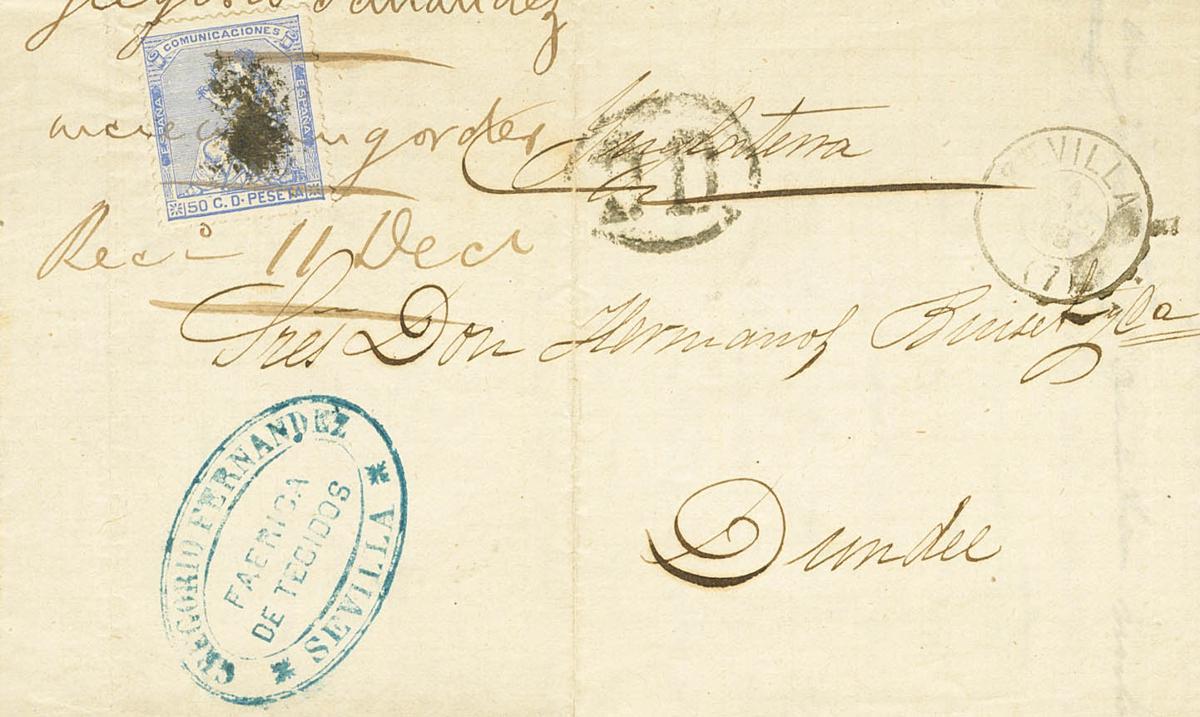 Gregorio Fernandez
COMUNICACIONES
ESPAÑA
ESPAÑA
50 C. D. PESETA
orders
Inglaterra
P.D.
SEVILLA
(7)
Rec.º 11 Dec
Sres Don Hermanos
Dundee
GREGORIO FERNANDEZ
FABRICA
DE TEGIDOS
SEVILLA